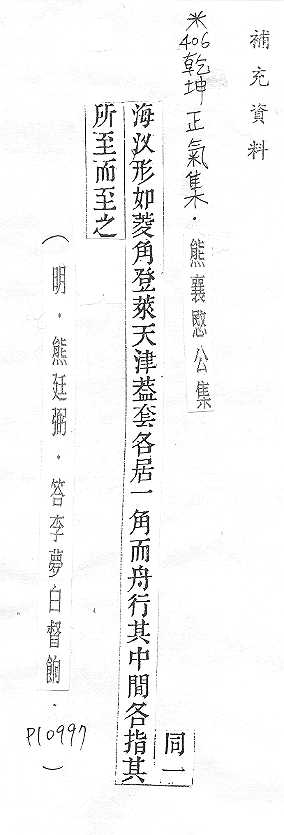 補充資料
米406 乾坤正氣集·熊襄愍公集
同一
海汊形如菱角登萊天津葢套各居一角而舟行其中間各指其
所至而至之
（明·熊廷弼·答李夢白督餉·P10997）